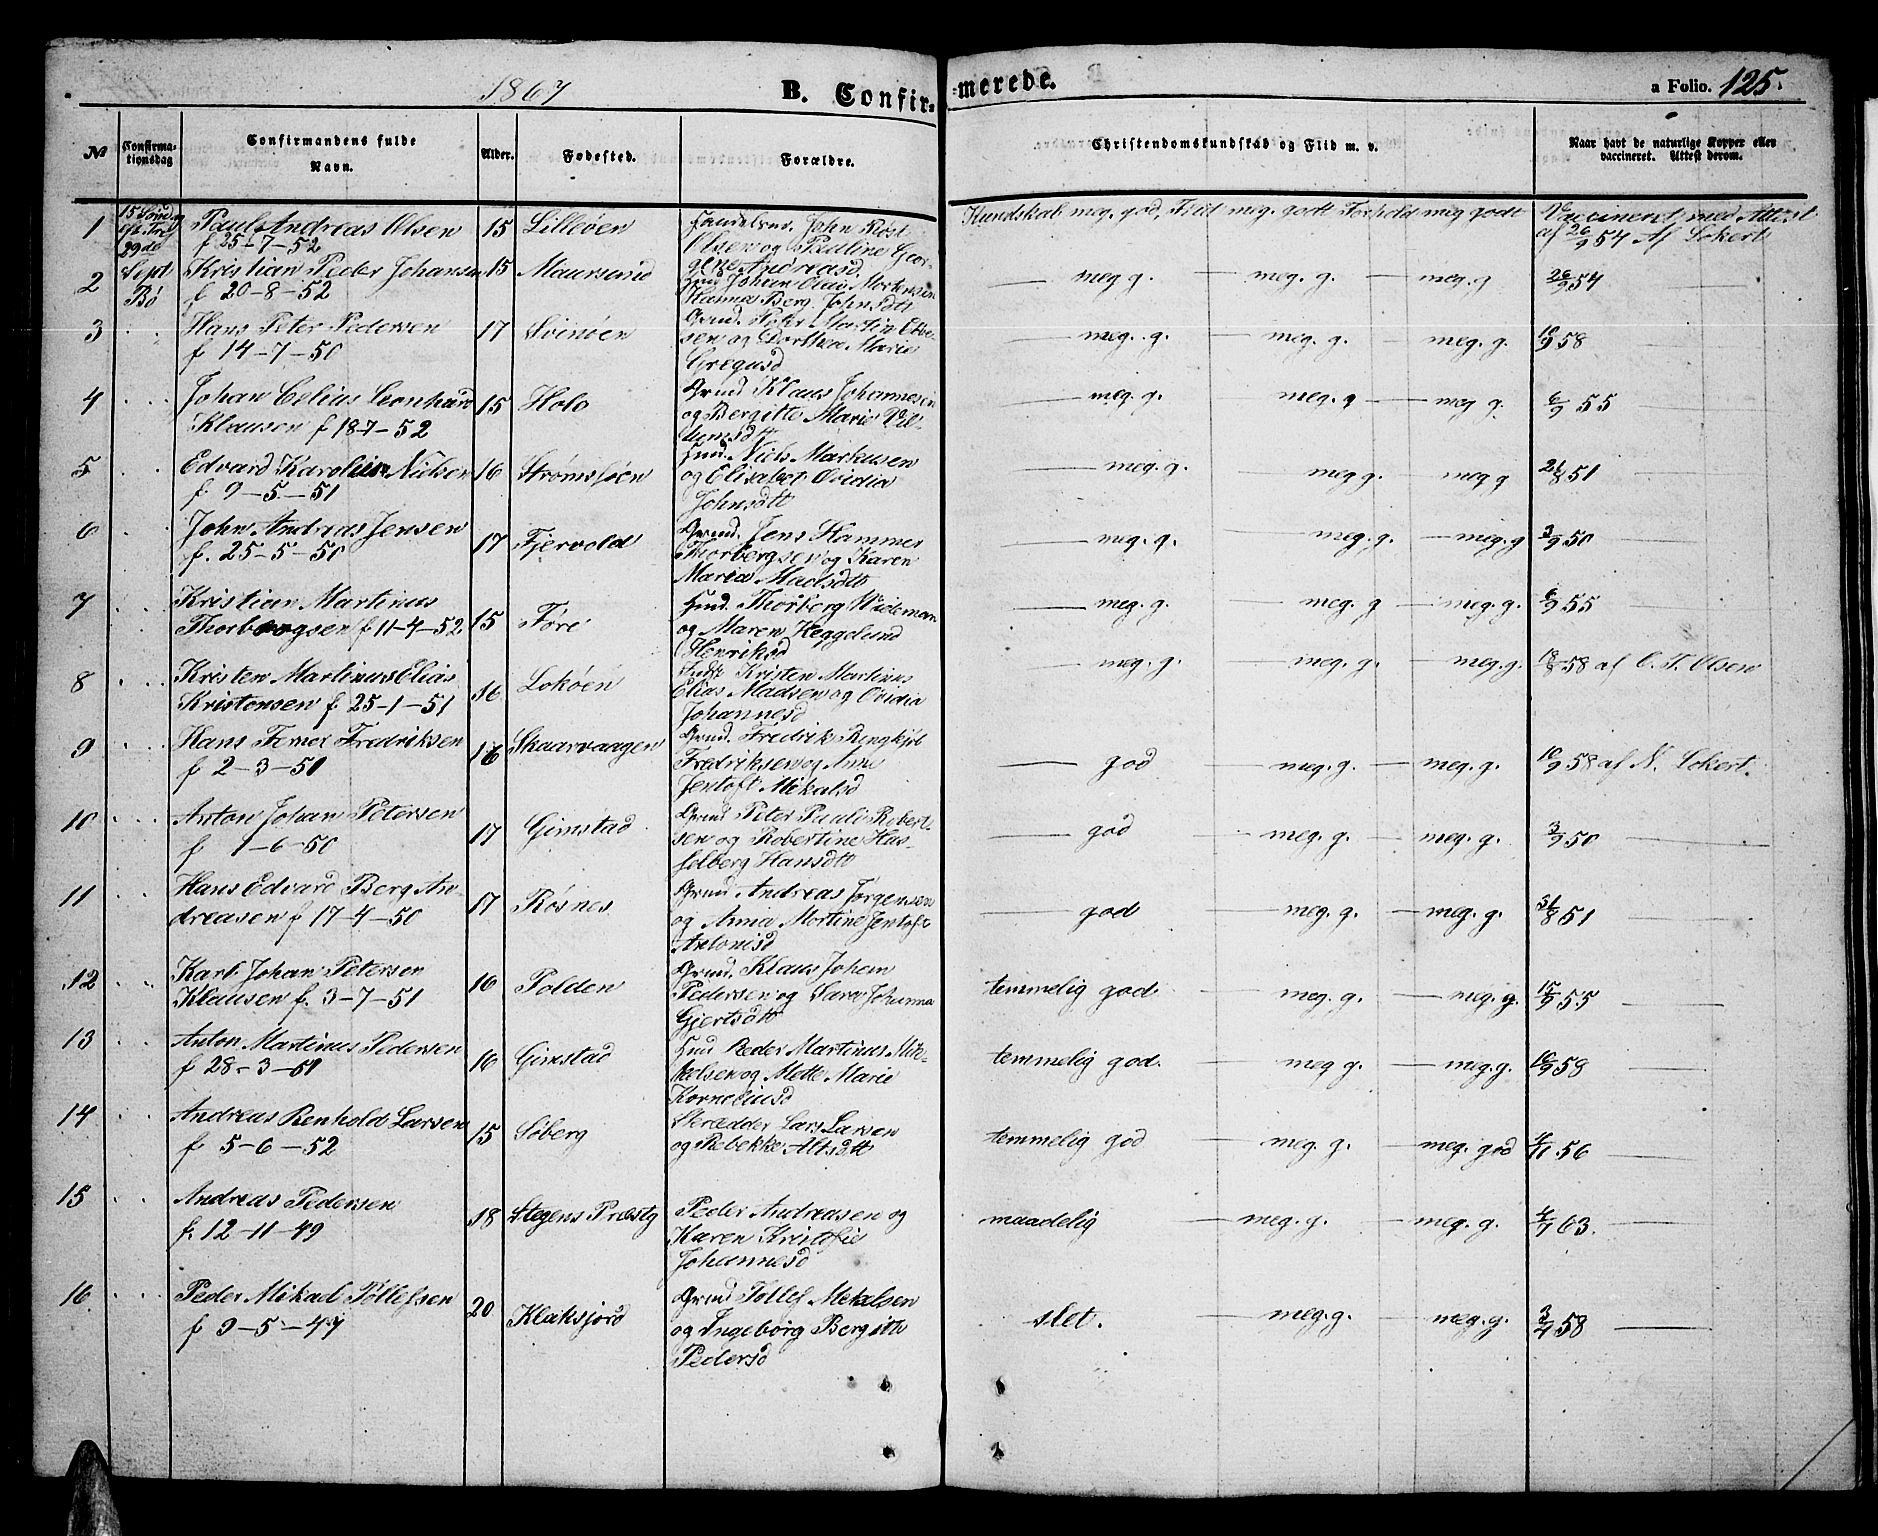 1867
B. Confir-
merede.
a Folio. 125.
No
Confirma-
tionsdag
Confirmandens fulde
Navn.
Alder.
Fødested.
Forældre.
Christendomskundskab og Flid m. v.
Naar havt de naturlige Kopper eller
vaccineret. Attest derom.
1
15 Søndag
eft. Tref
29de
Sept
Bø
Paul Andreas Olsen
f 25-7-52
15
Lilleøen
John Røst
Olsen og Pauline Geor-
gine Andreasd.
Kundskab meg. god, Flid meg. godt Forhold meg godt
Vaccineret med Attest
af 26/9 54 Af Lokert
2
Kristian Peder Johansen
f 20-8-52
15
Maursund
Huus Johan Olai Mortensen
Hanna Berg Johnsdtt
meg g. — meg. g. — meg. g
26/9 54
3
Hans Peter Pedersen
f 14-7-50
17
Svinøen
Grmd. Peter Martin Ebbe-
sen og Dorthea Marie
Gregusd
meg. g. — meg. g. — meg. g.
10/9 58
4
Johan Celius Leonhard
Klausen f 18-7-52
15
Hole
Grmd Klaus Johannesen
og Bergitte Marie Vil-
lumsdtt
meg. g. meg. g — meg g.
6/9 55
5
Edvard Karolius Nielsen
f. 9-5-51
16
Strømsjøen
Huus. Niels Markusen
og Elisabet Ovidia
Johnsdtt
meg. g. meg g. meg g
21/8 51
6
John Andreas Jensen
f. 25-5-50
17
Fjervold
Grmd. Jens Hammer
Thorbergsen og Karen
Maria Madsdtt
meg. g. — meg. g. — meg. g
3/9 50
7
Kristian Martinus
Thorbergsen f 11-4-52
15
Føre
Huus. Thorberg Wideman
og Maren Heggelund
Henriksd
meg. g. — meg. g — meg. g.
6/9 55
8
Kristen Martinus Elias
Kristensen f 25-1-51
16
Lokøen
Kristen Martinus
Elias Madsen og Ovidia
Johannesd
meg. g. — meg. g. — meg. g.
18/8 58 af C. T. Olsen
9
Hans Ferner Fredriksen
f 2-3-51
16
Skaarvaagen
Grmd. Fredrik Ringkjøb
Fredriksen og Anne
Jentoft Mikalsd
god — meg. g. — meg. g.
10/9 58 af N. Lokert.
10
Anton Johan Petersen
f 1-6-50
17
Gimstad
Grmd Peter Paule Robert-
sen og Robertine Has-
selberg Hansdtt
god — meg. g. — meg. g.
3/9 50
11
Hans Edvard Berg An-
dreasen f 17-4-50
17
Røsnes
Grmd Andreas Jørgensen
og Anna Martine Jentoft
Antonisd
god — meg. g. — meg. g.
31/8 51
12
Karl Johan Petersen
Klausen f. 3-7-51
16
Polden
Grmd. Klaus Johan
Pedersen og Sara Johanna
Gjertsdtt
temmelig god — meg. g. — meg. g.
15/9 55
13
Anton Martinus Pedersen
f 28-3-51
16
Gimstad
Huus Peder Martinus Mik-
kelsen og Mette Marie
Korneliusd
temmelig god. — meg g. — meg. g.
10/9 58
14
Andreas Renhold Larsen
f 5-6-52
15
Søberg
Skrædder Lars Larsen
og Rebekke Altsdtt
temmelig god — meg. g. — meg. god
4/11 56
15
Andreas Pedersen
f. 12-11-49
18
Stegens Præstg
Peder Andreasen og
Karen Kristofie
Johannesd
maadelig — meg. g. — meg. g.
63.
16
Peder Mikael Tøllefsen
f 9-5-47
20
Klaksjord
Grmd Tollef Mekelsen
og Ingeborg Bergitte
Pedersd
slet. — meg. g. — meg. g.
58